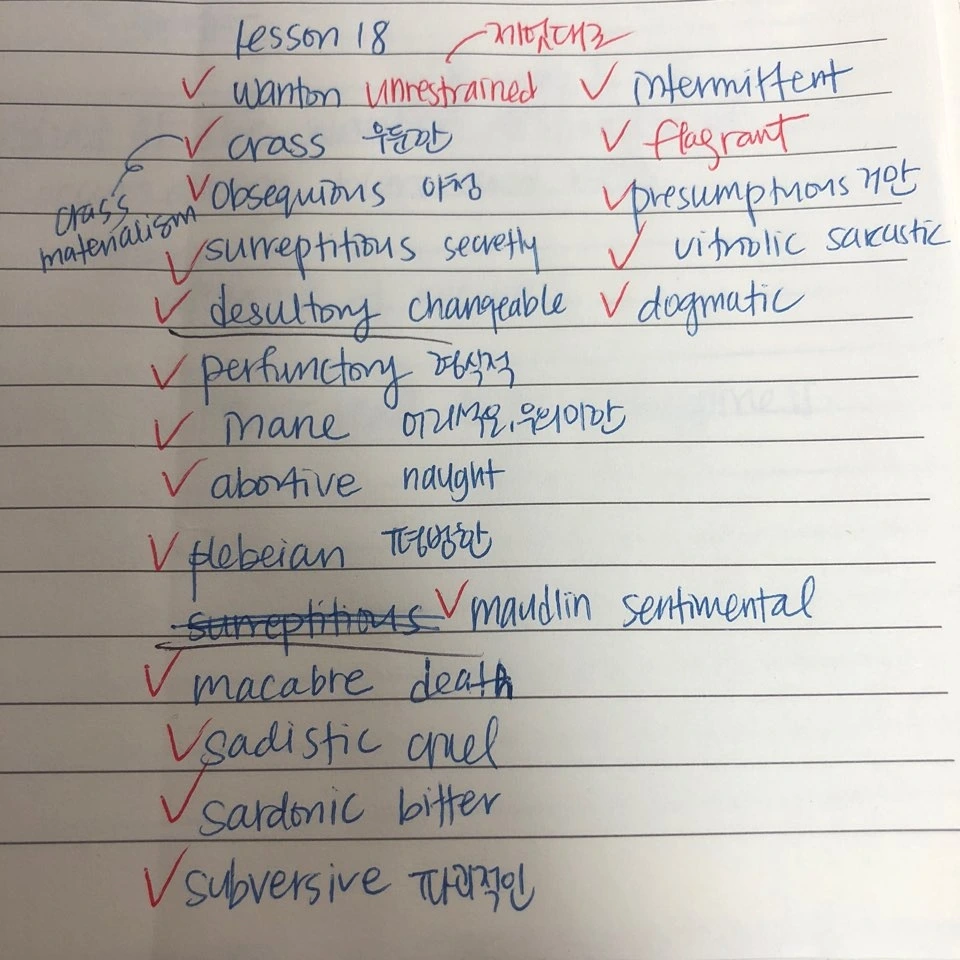 Lesson 18
제멋대로
wanton unrestrained
intermittent
crass 우둔한
flagrant
crass materialism
obsequious 아첨
presumptuous 거만
surreptitious secretly
vitriolic sarcastic
desultory changeable
dogmatic
perfunctory 형식적
inane 어리석은, 무의미한
abortive naught
plebeian 평범한
surreptitious
maudlin sentimental
macabre death
sadistic cruel
sardonic bitter
subversive 파괴적인